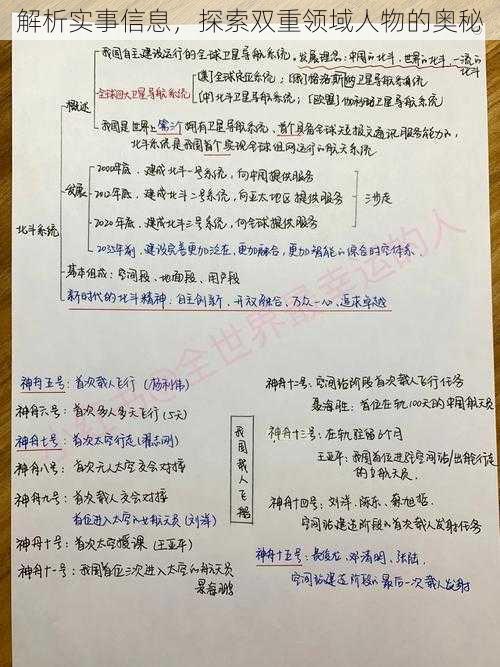 解析实事信息，探索双重领域人物的奥秘
我国自主建设运行的全球卫星导航系统。发展理念：中国的北斗、世界的北斗、一流的北斗
概述
全球四大卫星导航系统
[美]全球定位系统；[俄]格洛纳斯卫星导航系统
[中]北斗卫星导航系统；[欧盟]伽利略卫星导航系统
我国是世界上第三个拥有卫星导航系统、首个具备全球短报文通讯服务能力的，
北斗系统是我国首个实现全球组网运行的航天系统。
北斗系统
发展
2000年底，建成北斗一号系统，向中国提供服务
2012年底，建成北斗二号系统，向亚太地区提供服务
三步走
2020年底，建成北斗三号系统，向全球提供服务
2035年前，建设完善更加泛在、更加融合、更加智能的综合时空体系。
基本组成：空间段、地面段、用户段
新时代的北斗精神：自主创新、开放融合、万众一心、追求卓越
@全世界最幸运的人
神舟五号：首次载人飞行（杨利伟）
神舟六号：首次多人多天飞行（5天）
神舟七号：首次太空行走（翟志刚）
神舟八号：首次无人太空交会对接
神舟九号：首次载人交会对接
首位进入太空的女航天员（刘洋）
神舟十号：首次太空授课（王亚平）
神舟十一号：我国首位三次进入太空的航天员
景海鹏
我国载人飞船
神舟十二号：空间站阶段首次载人飞行任务
聂海胜：首位在轨100天的中国航天员
神舟十三号：在轨驻留6个月
王亚平：我国首位进驻空间站/出舱行走
的女航天员
神舟十四号：刘洋、陈东、蔡旭哲
空间站建造阶段的首次载人发射任务
神舟十五号：费俊龙、邓清明、张陆，
空间站建造阶段的最后一次载人发射